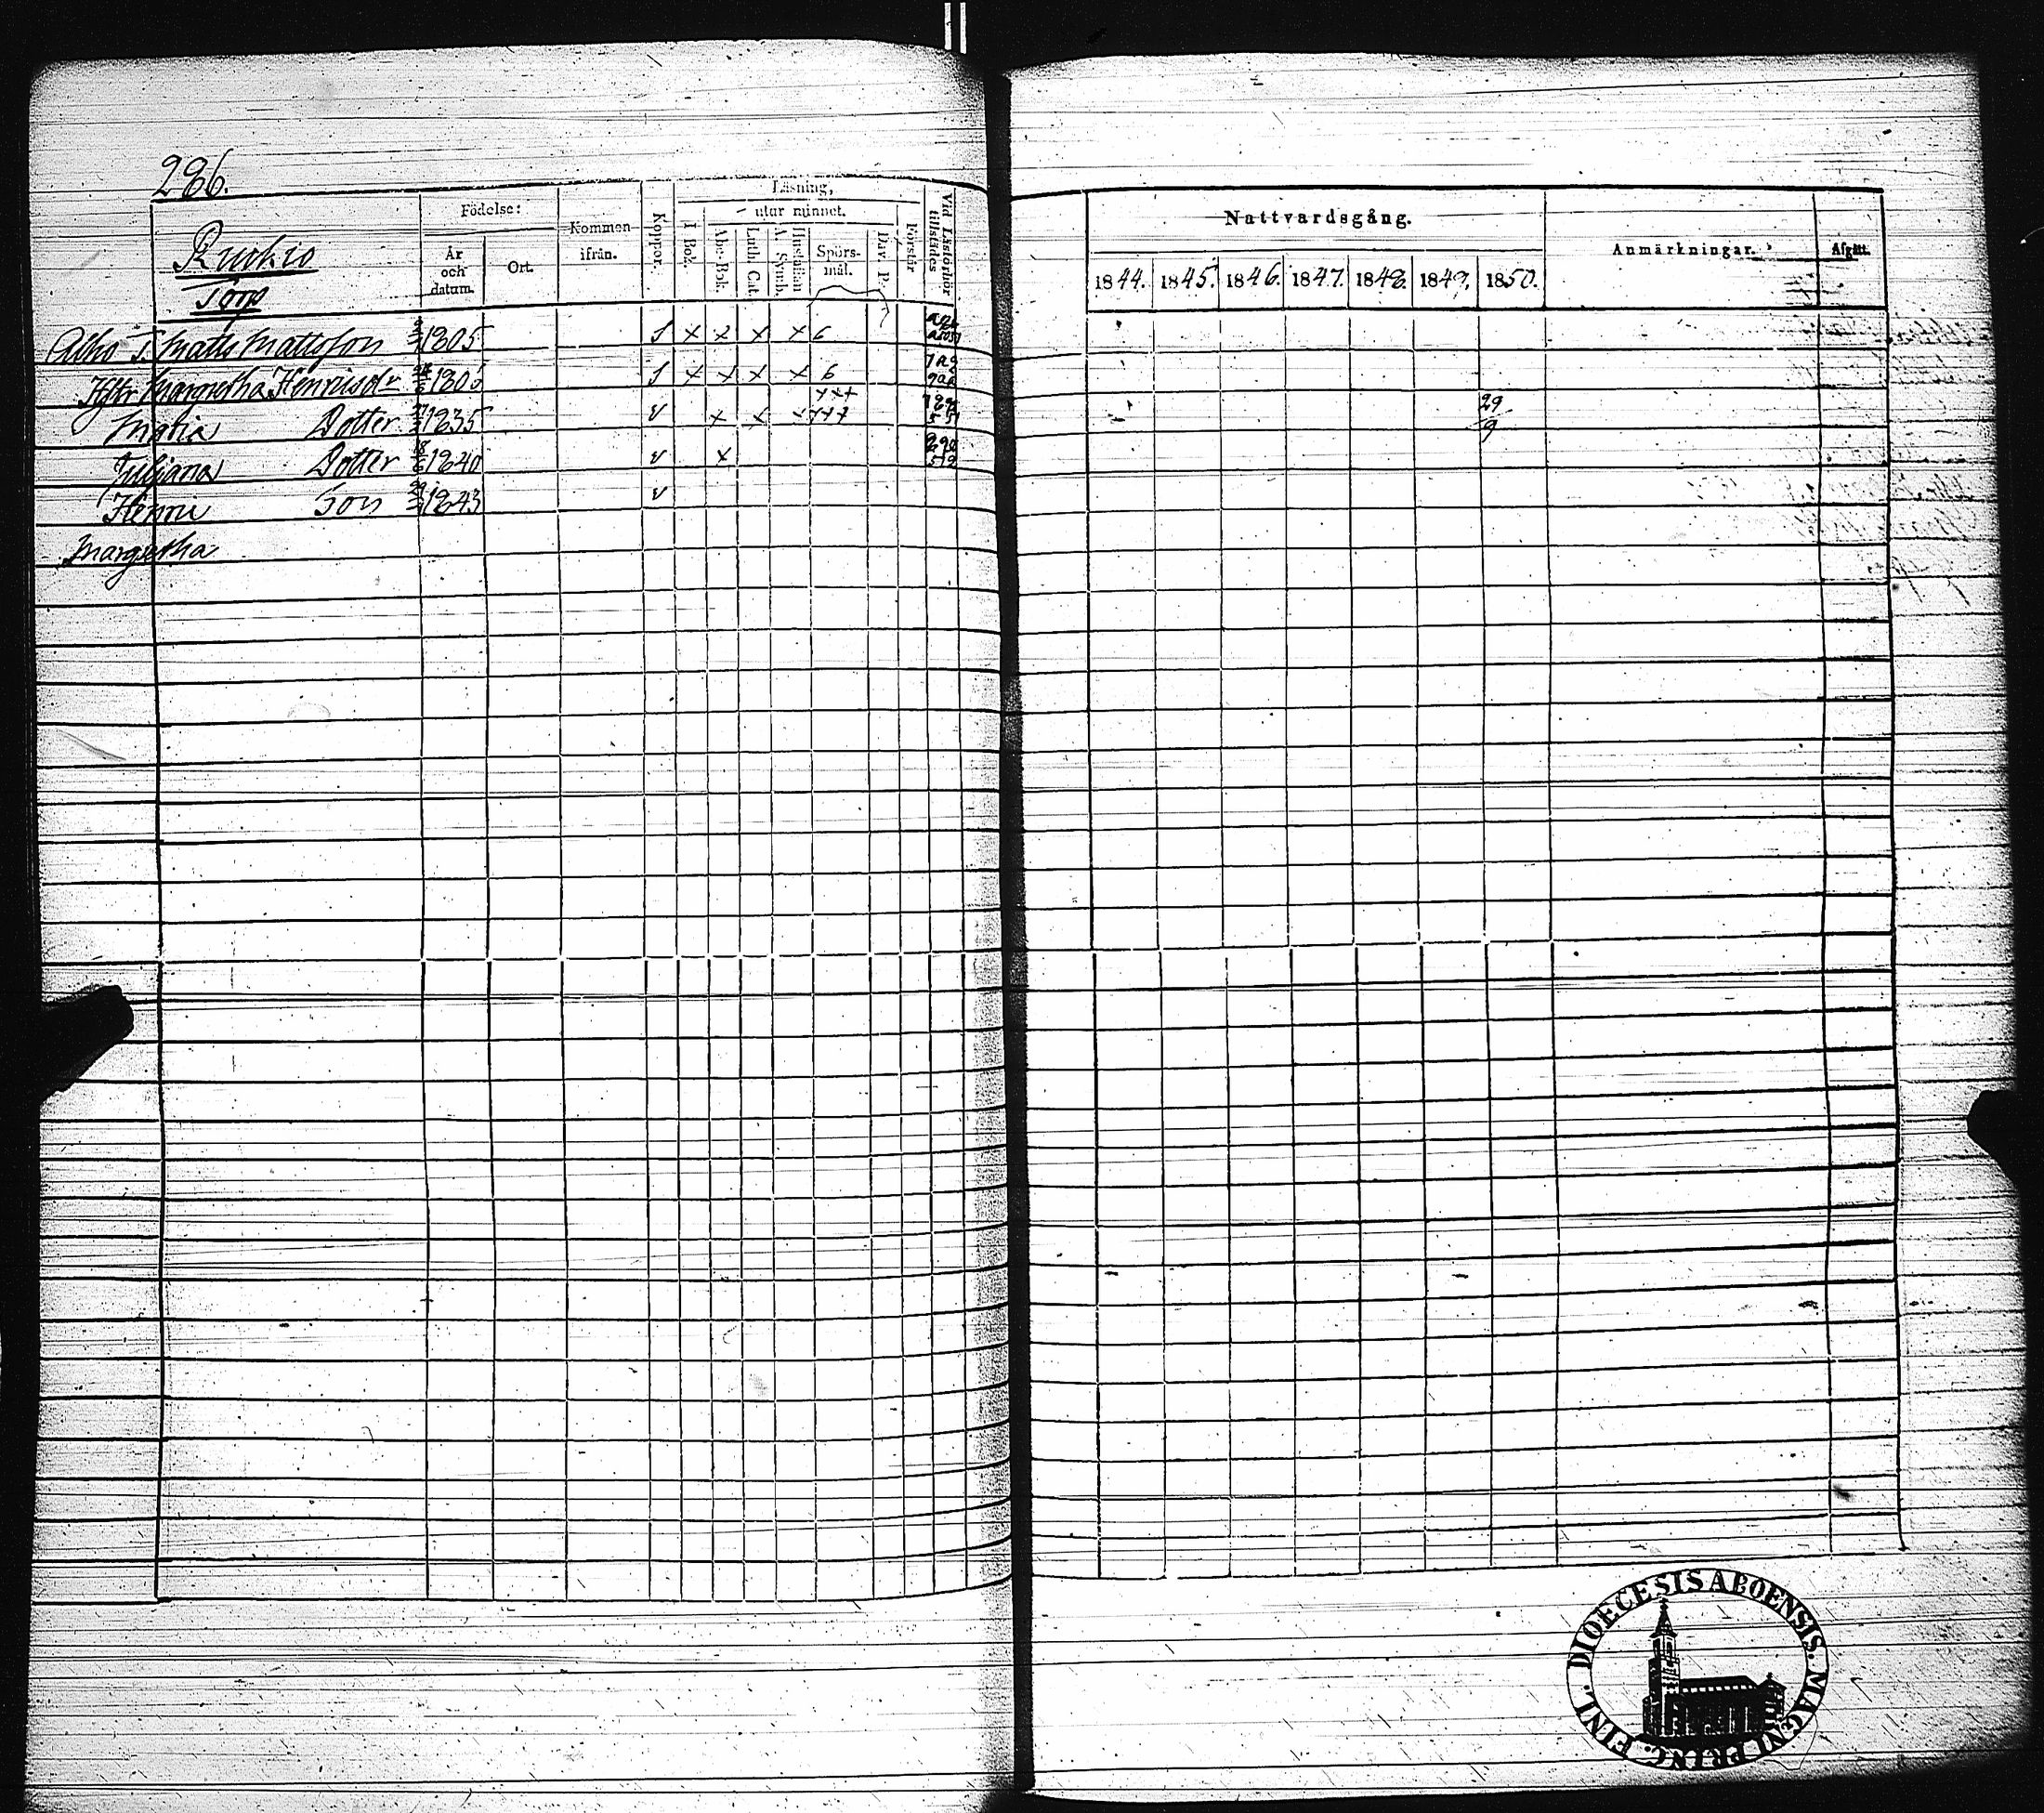 286.
Ruokio
Torp
Födelse:
År och datum.
Ort.
Kommen ifrån.
Koppor.
Läsning,
utur minnet.
I Bok.
Abc-Bok.
Luth. Cat.
A. Symb.
Hustaflan
Spörs-mål.
Dav. Ps.
Förstår
Vid Läsförhör tillstädes
Nattvardsgång.
1844. 1845. 1846. 1847. 1848. 1849. 1850.
Anmärkningar.
Afgått.
Alho T. Matts Mattsson 1805 x x x x 6
Margretha Henricsdr 1805 x x x x 6
Maria Dotter 1835 v x x x 29/9
Juliana Dotter 1840 v x
Henric Son 1843 v
Margretha
DIOECESIS ABOENSIS. MAGNI PRINC. FINL.